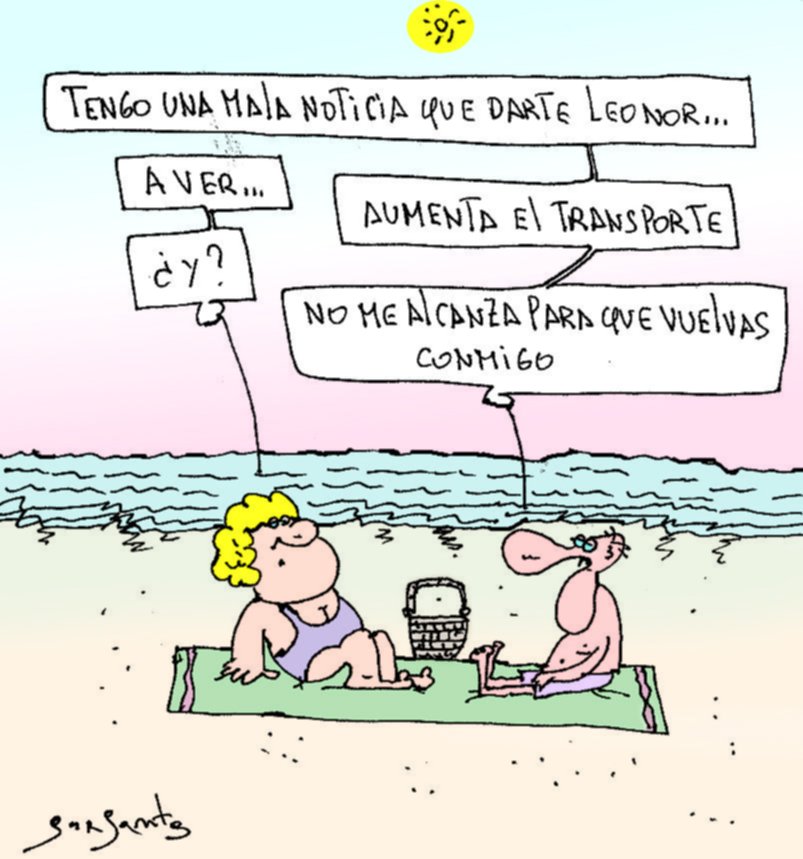 TENGO UNA MALA NOTICIA QUE DARTE LEONOR...
A VER...
AUMENTA El TRANSPORTE
¿Y?
NO ME AlCANZA PARA QUE VUElVAS
CONMIGO